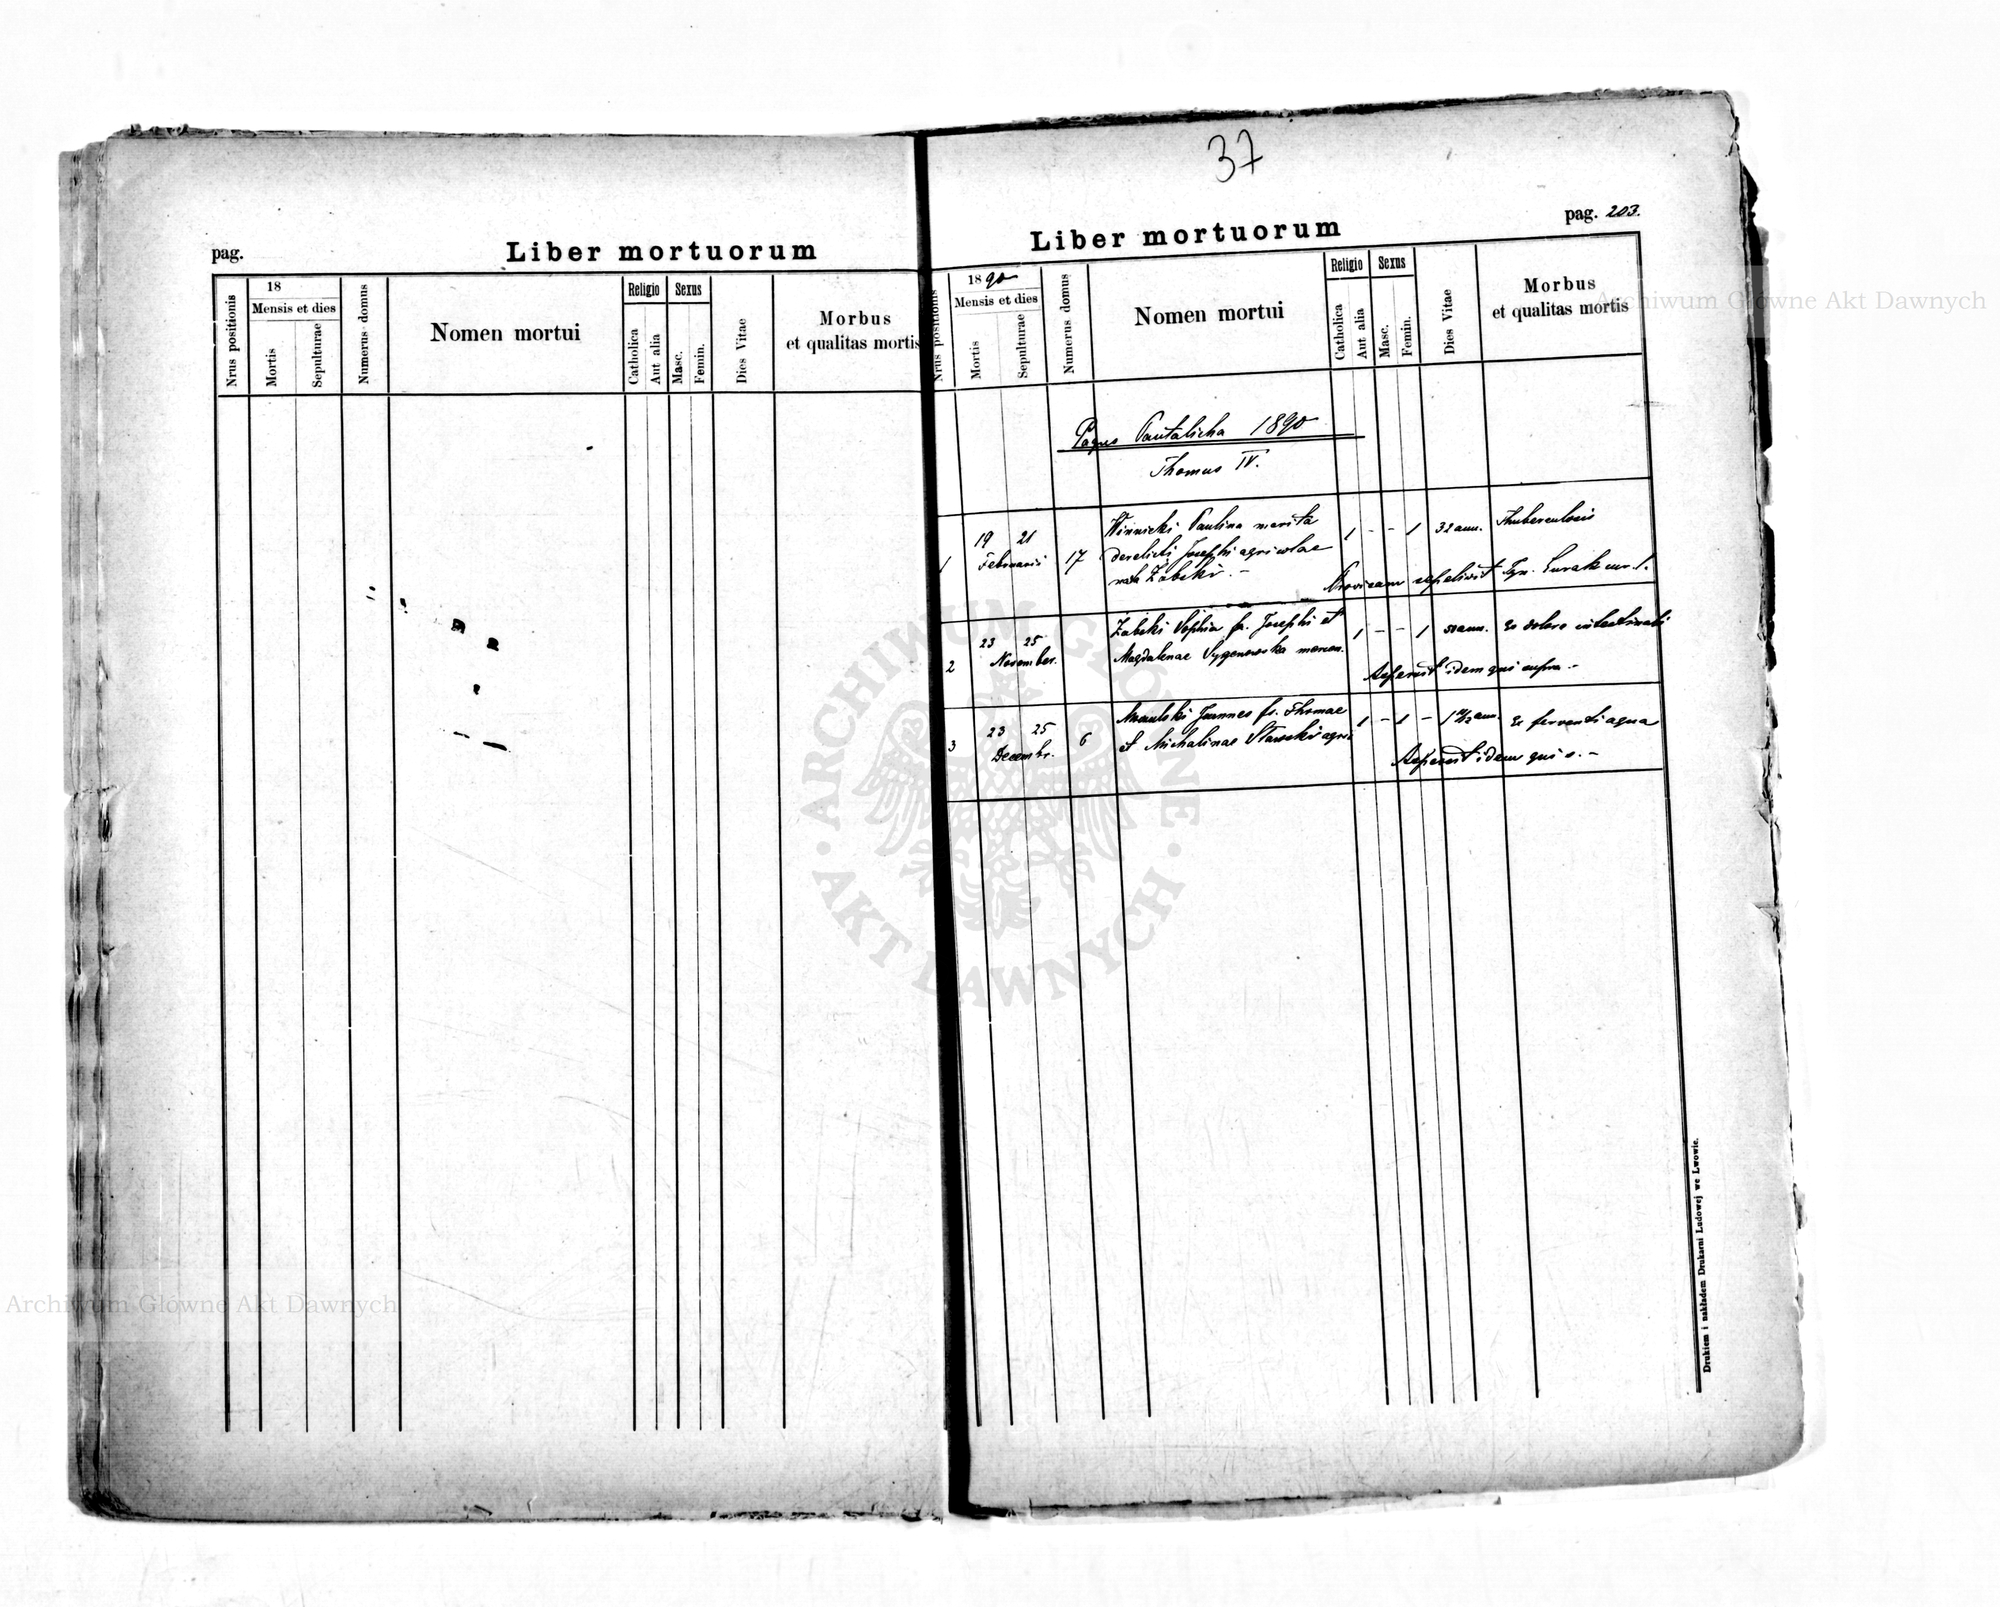 37
pag.
Liber mortuorum
Nrus positionis
18
Mensis et dies
Mortis
Sepulturae
Numerus domus
Nomen mortui
Religio
Catholica
Aut alia
Sexus
Masc.
Femin.
Dies Vitae
Morbus
et qualitas mortis
Liber mortuorum
pag. 203.
Nrus positionis
1890
Mensis et dies
Mortis
Sepulturae
Numerus domus
Nomen mortui
Religio
Catholica
Aut alia
Sexus
Masc.
Femin.
Dies Vitae
Morbus
et qualitas mortis
Pagus Pantalicha 1890
Thomus IV.
1 19 21 Februarii 17 Winnicki Paulina marita 1 - - 1 32 ann. Thuberculosis
derelicti Josephi agricolae
nata Żabski. -
Provisam sepelivit Ign. Curak
2 23 25 November. Żabski Sophia fa. Josephi et 1 - - 1 50 ann. Ex dolore intestinali
Magdalenae
Asperxit idem qui supra. -
3 23 25 Decembr. 6 Joannes fs. Thomae 1 - 1 - ann. Ex ferventi aqua
et Michalinae Stawski agri
idem qui s. -
Drukiem i nakładem Drukarni Ludowej we Lwowie.
Archiwum Główne Akt Dawnych
ARCHIWUM GŁÓWNE
AKT DAWNYCH
Archiwum Główne Akt Dawnych